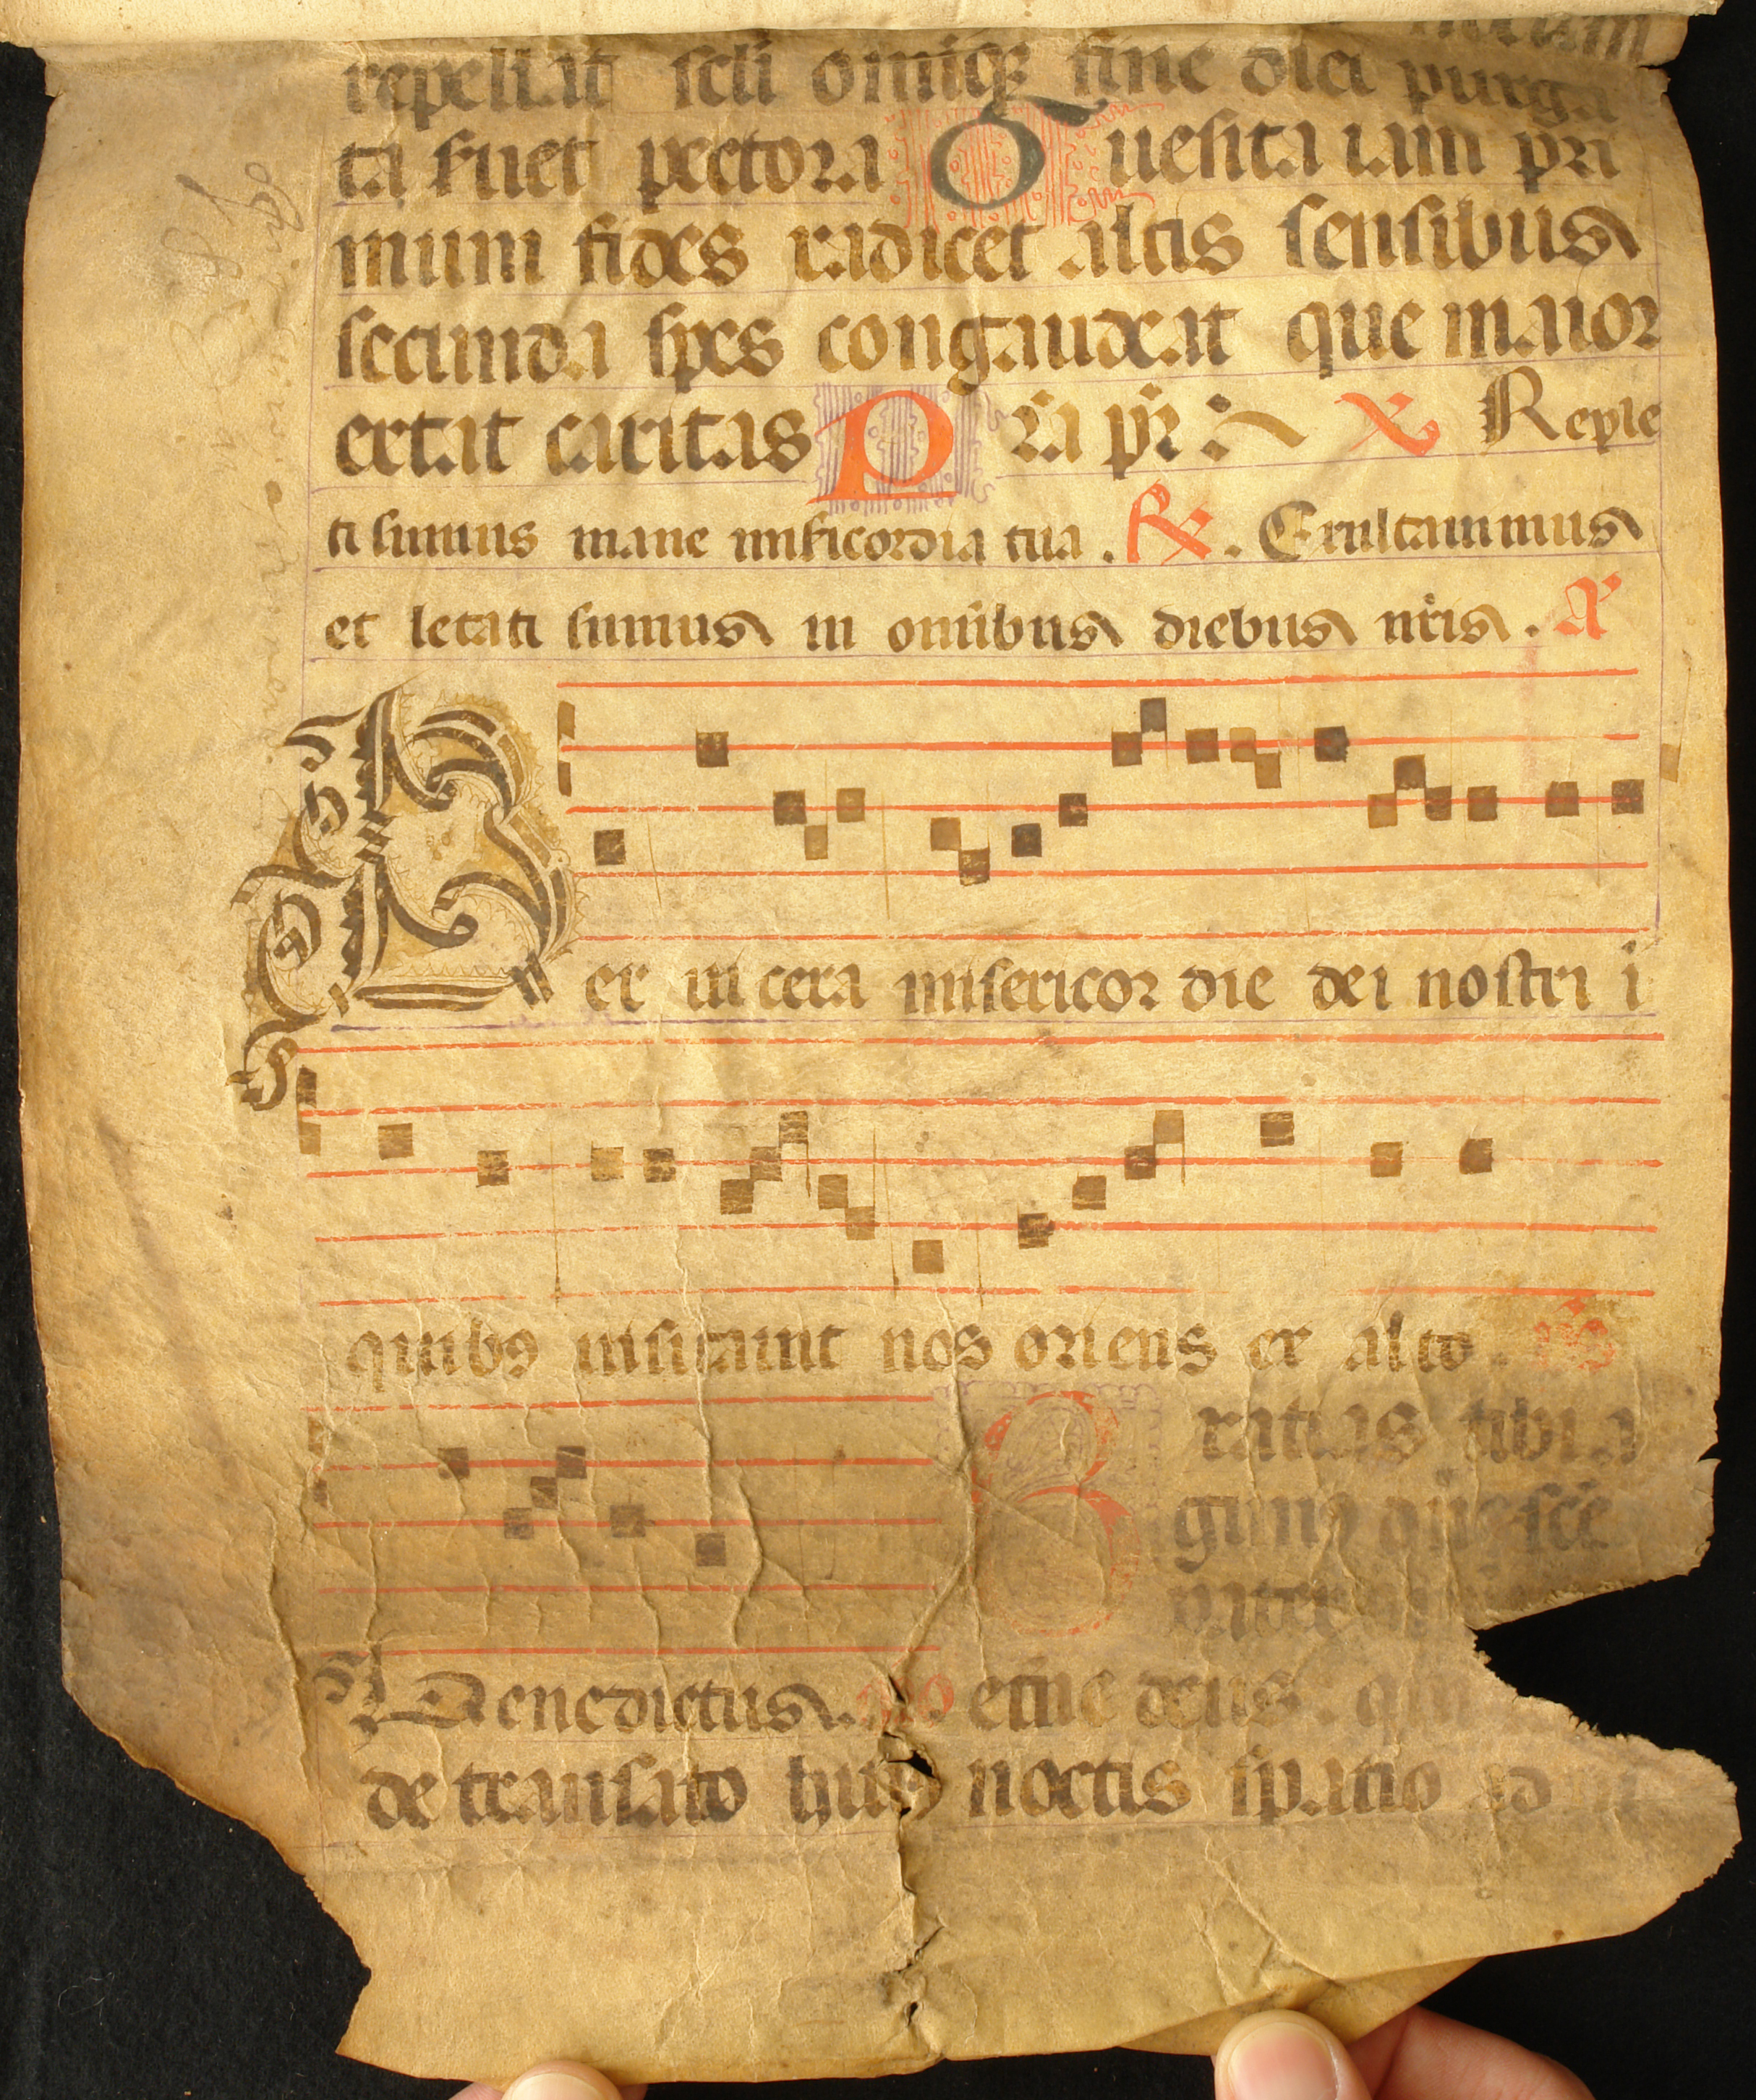 repellat scli omiqȝ fine diei purga
ta fuet pectora Quesita iam pri
mum fides radicet altis sensibus
secunda spes congaudeat que maior
extat caritas Pra pr Reple
ti sumus mane misicordia tua . ℟. Exultauimus
et letati sumus in omibus diebus nris . A
Per uiscera misericordie dei nostri i
quibꝯ uisitauit nos oriens ex alto .
Gratias tibi a
gimꝯ dne sce
pater
Benedictus. eterne deus qui
de transacto huiꝯ noctis spatio ad